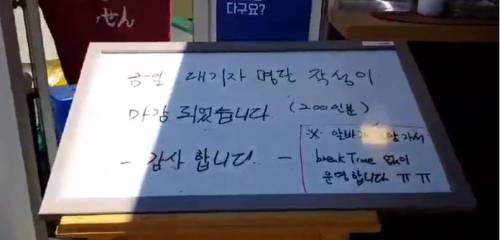 せん
다구요?
금일 대기자 명단 작성이
마감 되었습니다 (200인분)
- 감사 합니다. -
※ 알바가 도망가서
break Time 없이
운영합니다 ㅠㅠ